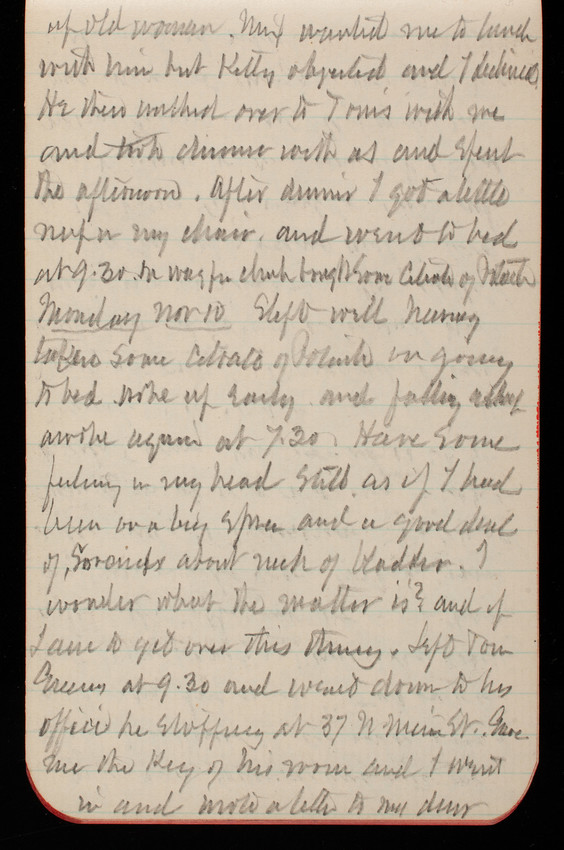 of old woman. wanted me to lunch
with him but Kitty objected and I declined.
He then walked over to Tom's with me
and took dinner with us and spent
the afternoon. After dinner I got a little
nap in my chair. and went to bed
at 9.30. bought some Citrate of Potash
Monday Nov 10 Slept well having
taken some Citrate of Potash on going
to bed woke up early and falling asleep
awoke again at 7.30. Have some
feeling in my head still as if I had
been on a big spree and a good deal
of, soreness about neck of bladder. I
wonder what the matter is? and if
I am to get over this thing. Left Tom
Greens at 9.30 and went down to his
office he stopping at 37 N Main St. Gave
me the Key of his room and I went
in and wrote a letter to my dear